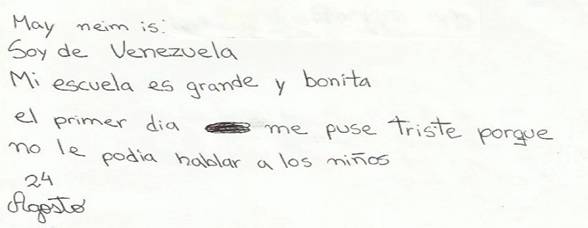 May neim is:
Soy de Venezuela
Mi escuela es grande y bonita
el primer dia me puse triste porque
no le podia hablar a los niños
24
Agosto